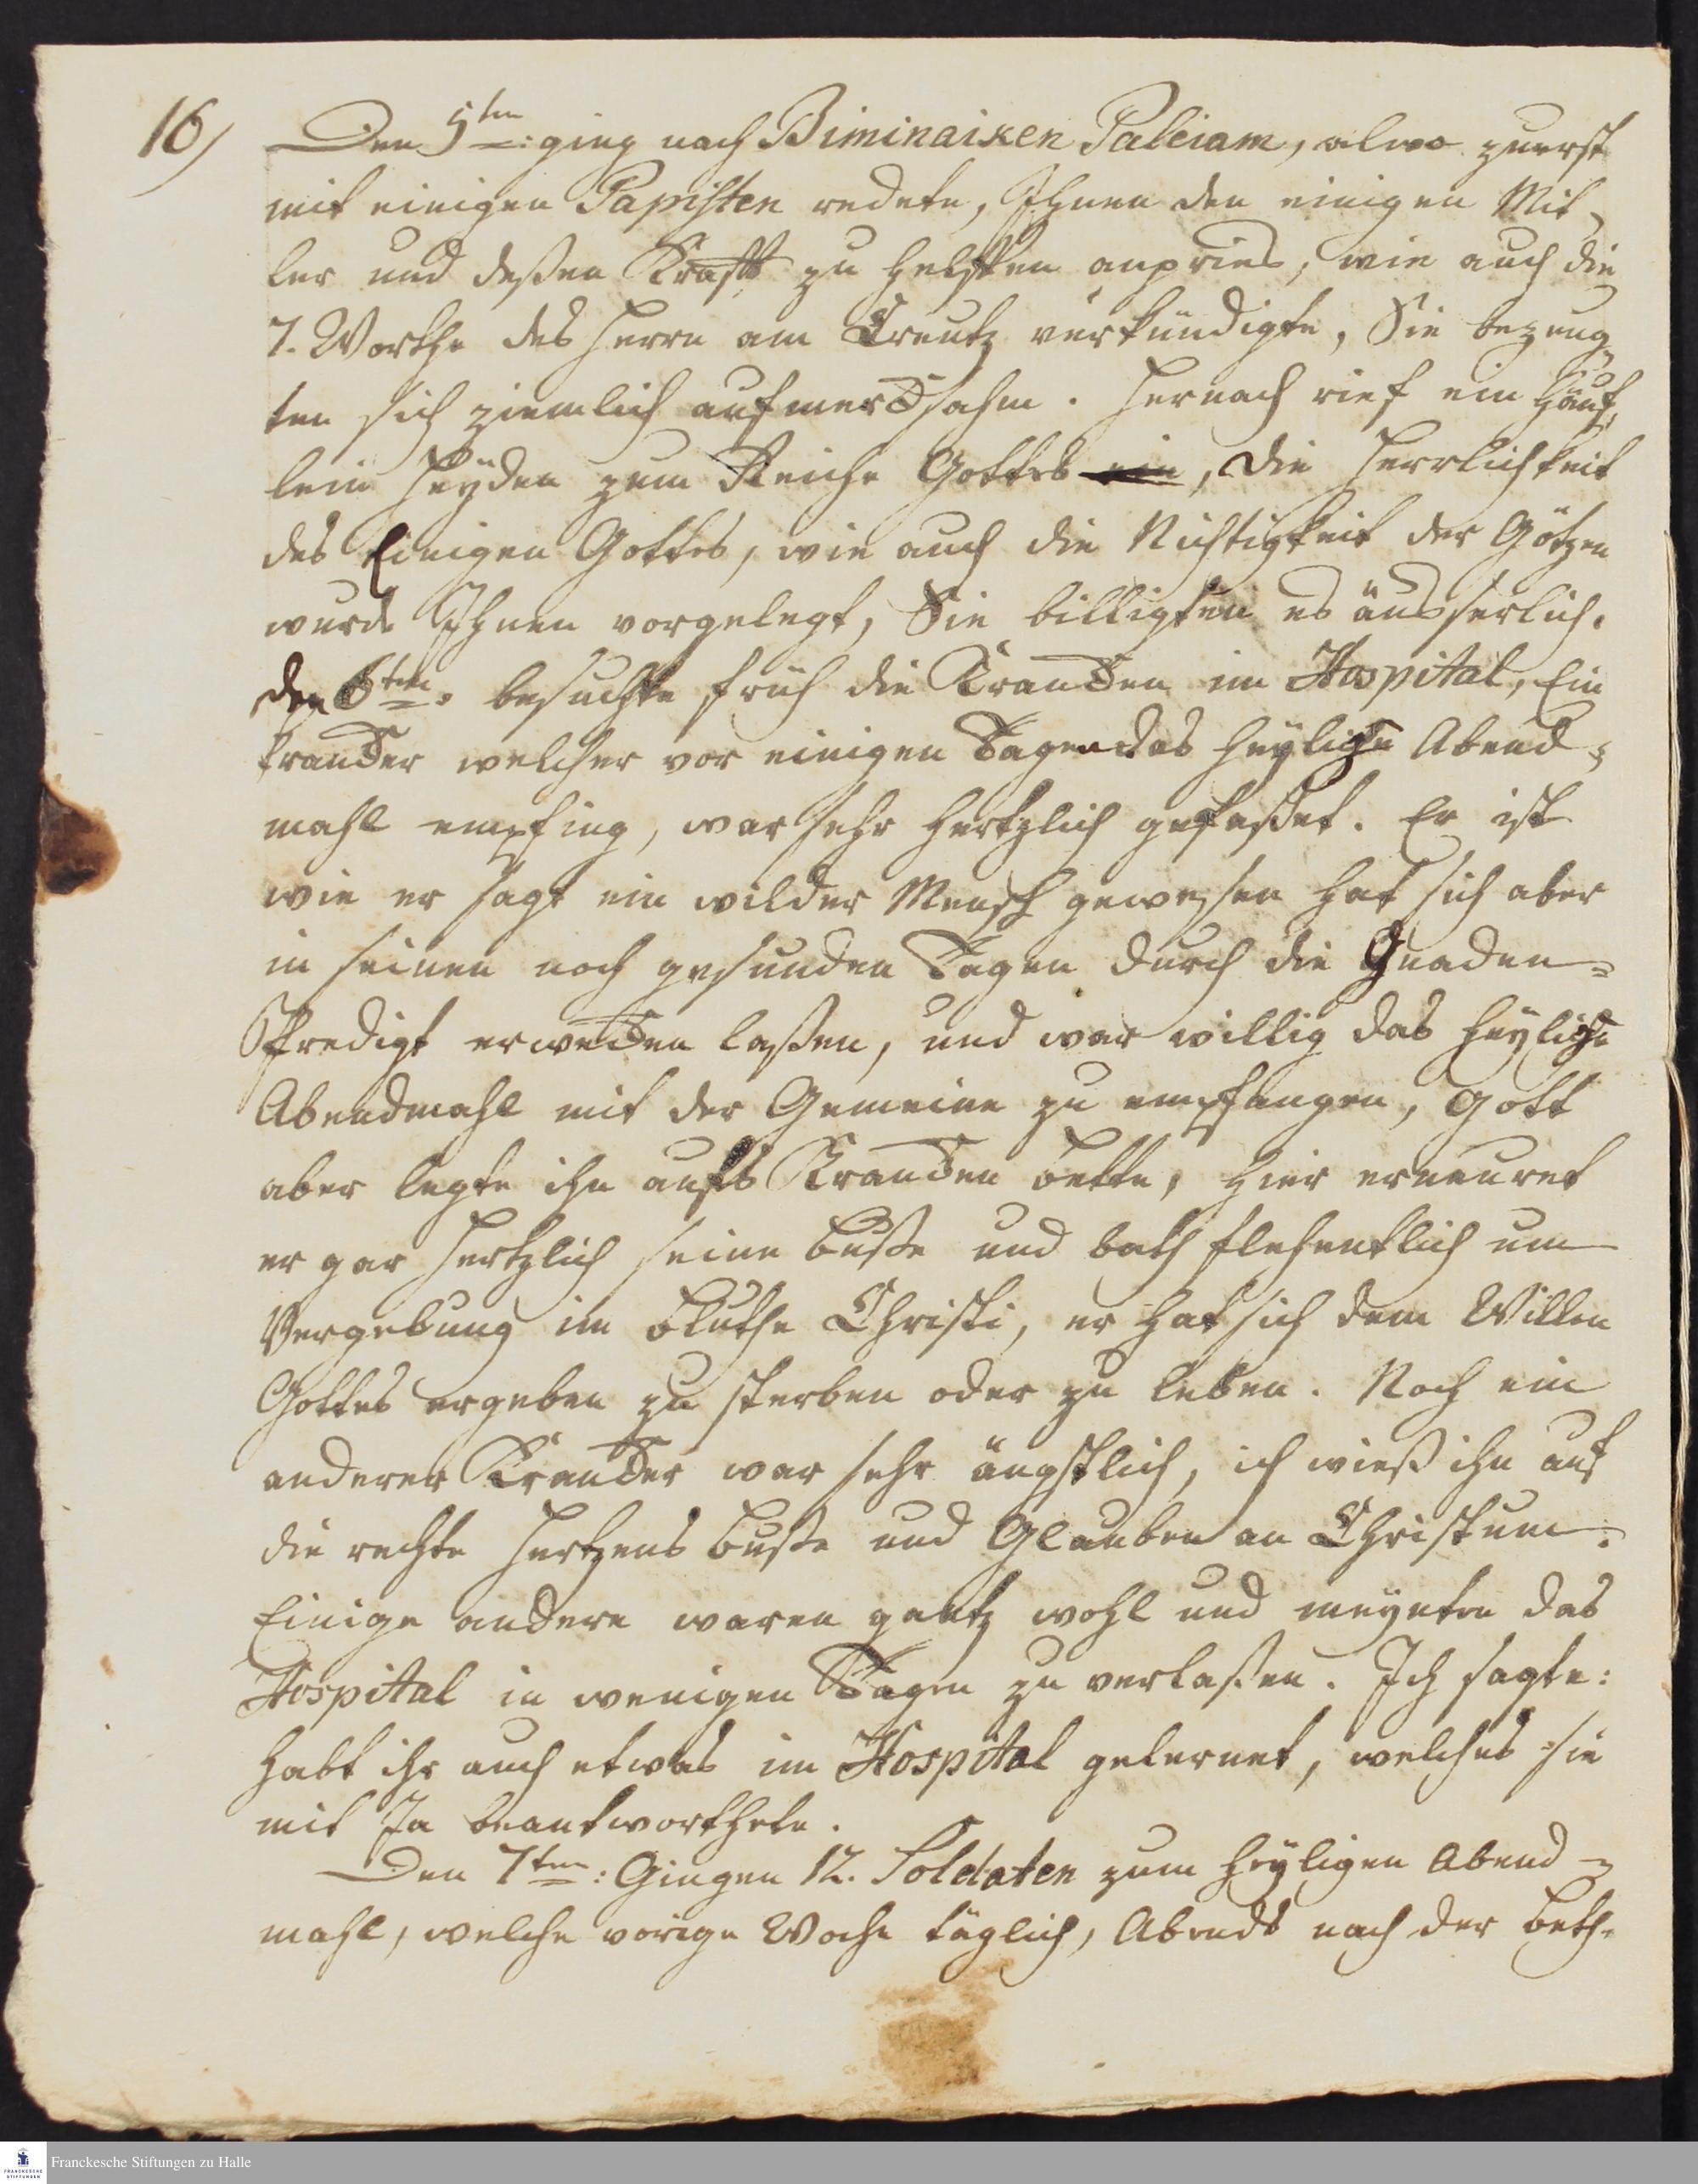 16)
Den 5ten: ging nach Biminaiken Paleiam, alwo zuerst
mit einigen Papisten redete, Ihnen den einigen Mit-
ler und deßen Krafft zu helffen anpries, wie auch die
7. Worthe des Herrn am Creutz verkündigte, Sie bezeug-
ten sich ziemlich aufmercksahm. Hernach rief ein Häuf-
lein Heyden zum Reiche Gottes ein, die Herrlichkeit
des Einigen Gottes, wie auch die Nichtigkeit der Götzen
wurde Ihnen vorgelegt, Sie billigten es äusserlich.
den 6ten. besuchte früh die Krancken im Hospital, Ein
krancker welcher vor einigen Tagen das heylige Abend-
mahl empfing, war sehr hertzlich gefaßet. Er ist
wie er sagt ein wilder Mensch gewesen hat sich aber
in seinen noch gesunden Tagen durch die Gnaden-
Predigt erwecken laßen, und war willig das heylige
Abendmahl mit der Gemeine zu empfangen, Gott
aber legte ihn aufs Krancken bette, hier erneuret
er gar hertzlich seine buße und bath flehentlich um
Vergebung im bluthe Christi, er hat sich dem Willen
Gottes ergeben zu sterben oder zu leben. Noch ein
anderer Krancker war sehr ängstlich, ich wieß ihn auf
die rechte Hertzens buße und Glauben an Christum.
Einige andere waren gantz wohl und meynten das
Hospital in wenigen Tagen zu verlaßen. Ich sagte:
habt ihr auch etwas im Hospital gelernet, welches sie
mit Ja beantworthete.
Den 7ten: Gingen 12. Soldaten zum heyligen Abend-
mahl, welche vorige Woche täglich, Abends nach der beth-
Franckesche Stiftungen zu Halle
FRANCKESCHE
STIFTUNGEN